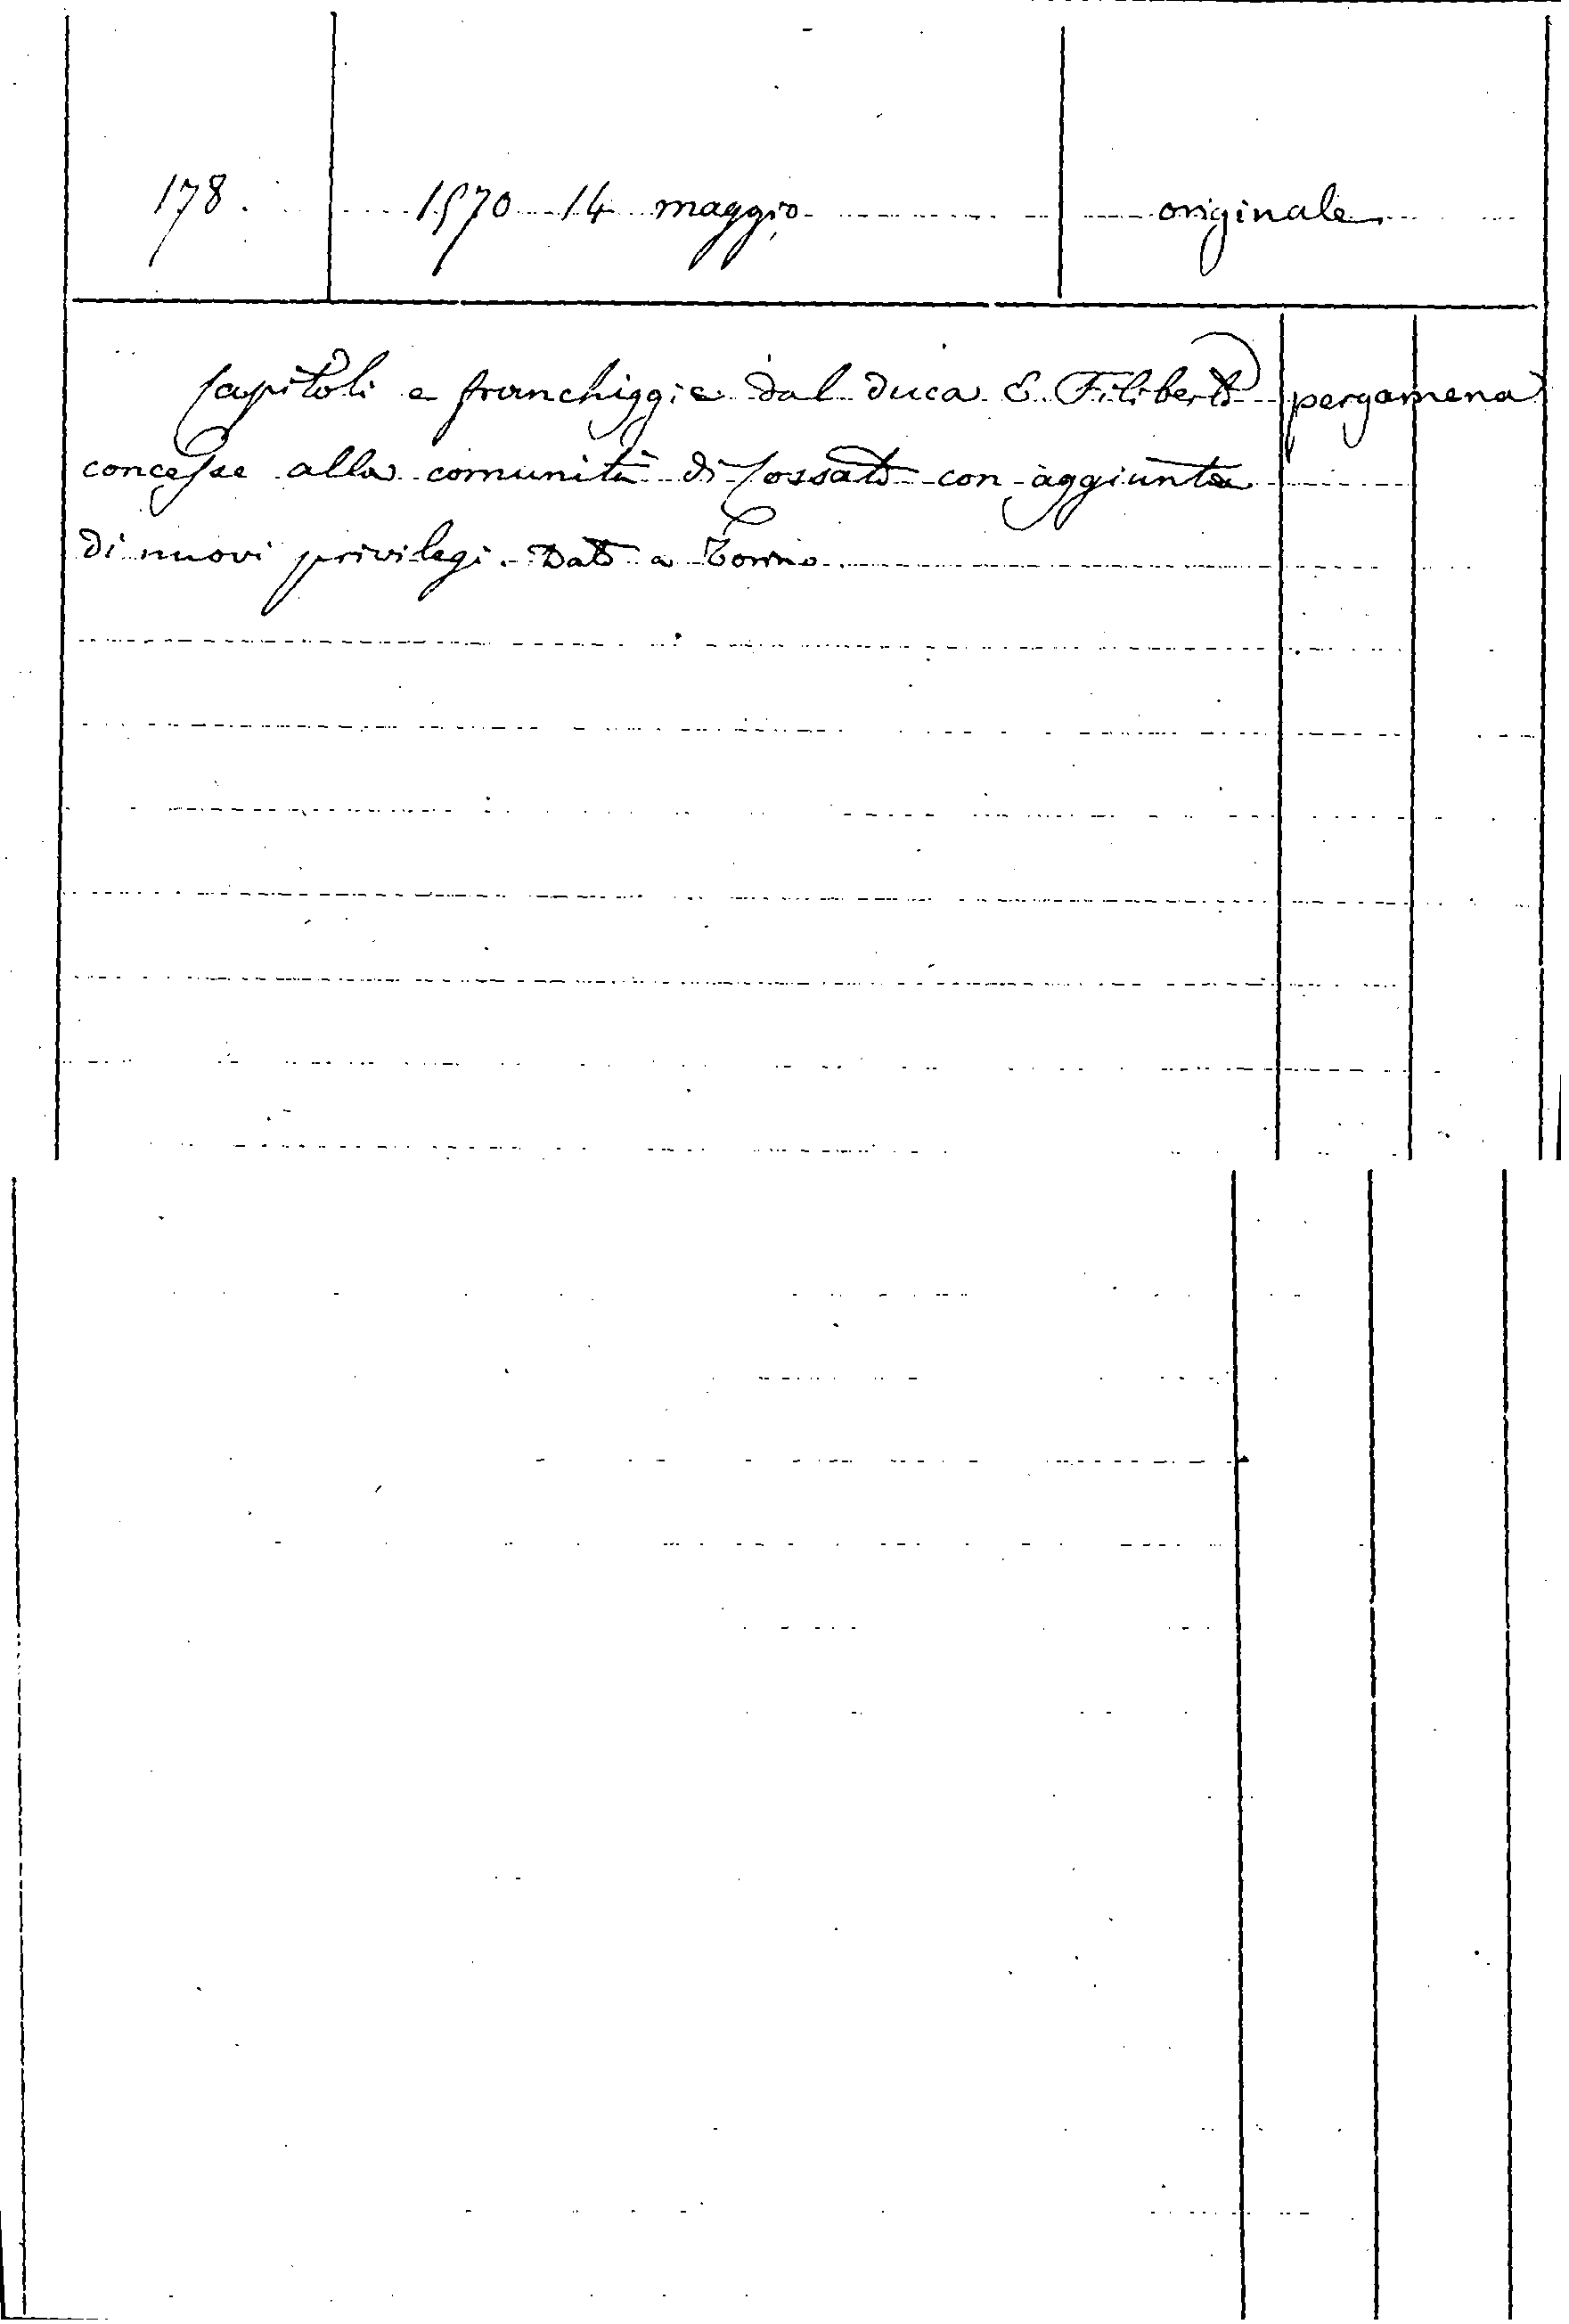 178. 1570 14 maggio originale
Capitoli e franchiggie dal duca E. Filiberto pergamena
concesse alla comunità di Cossato con aggiunta
di nuovi privilegi. Dato a Torino